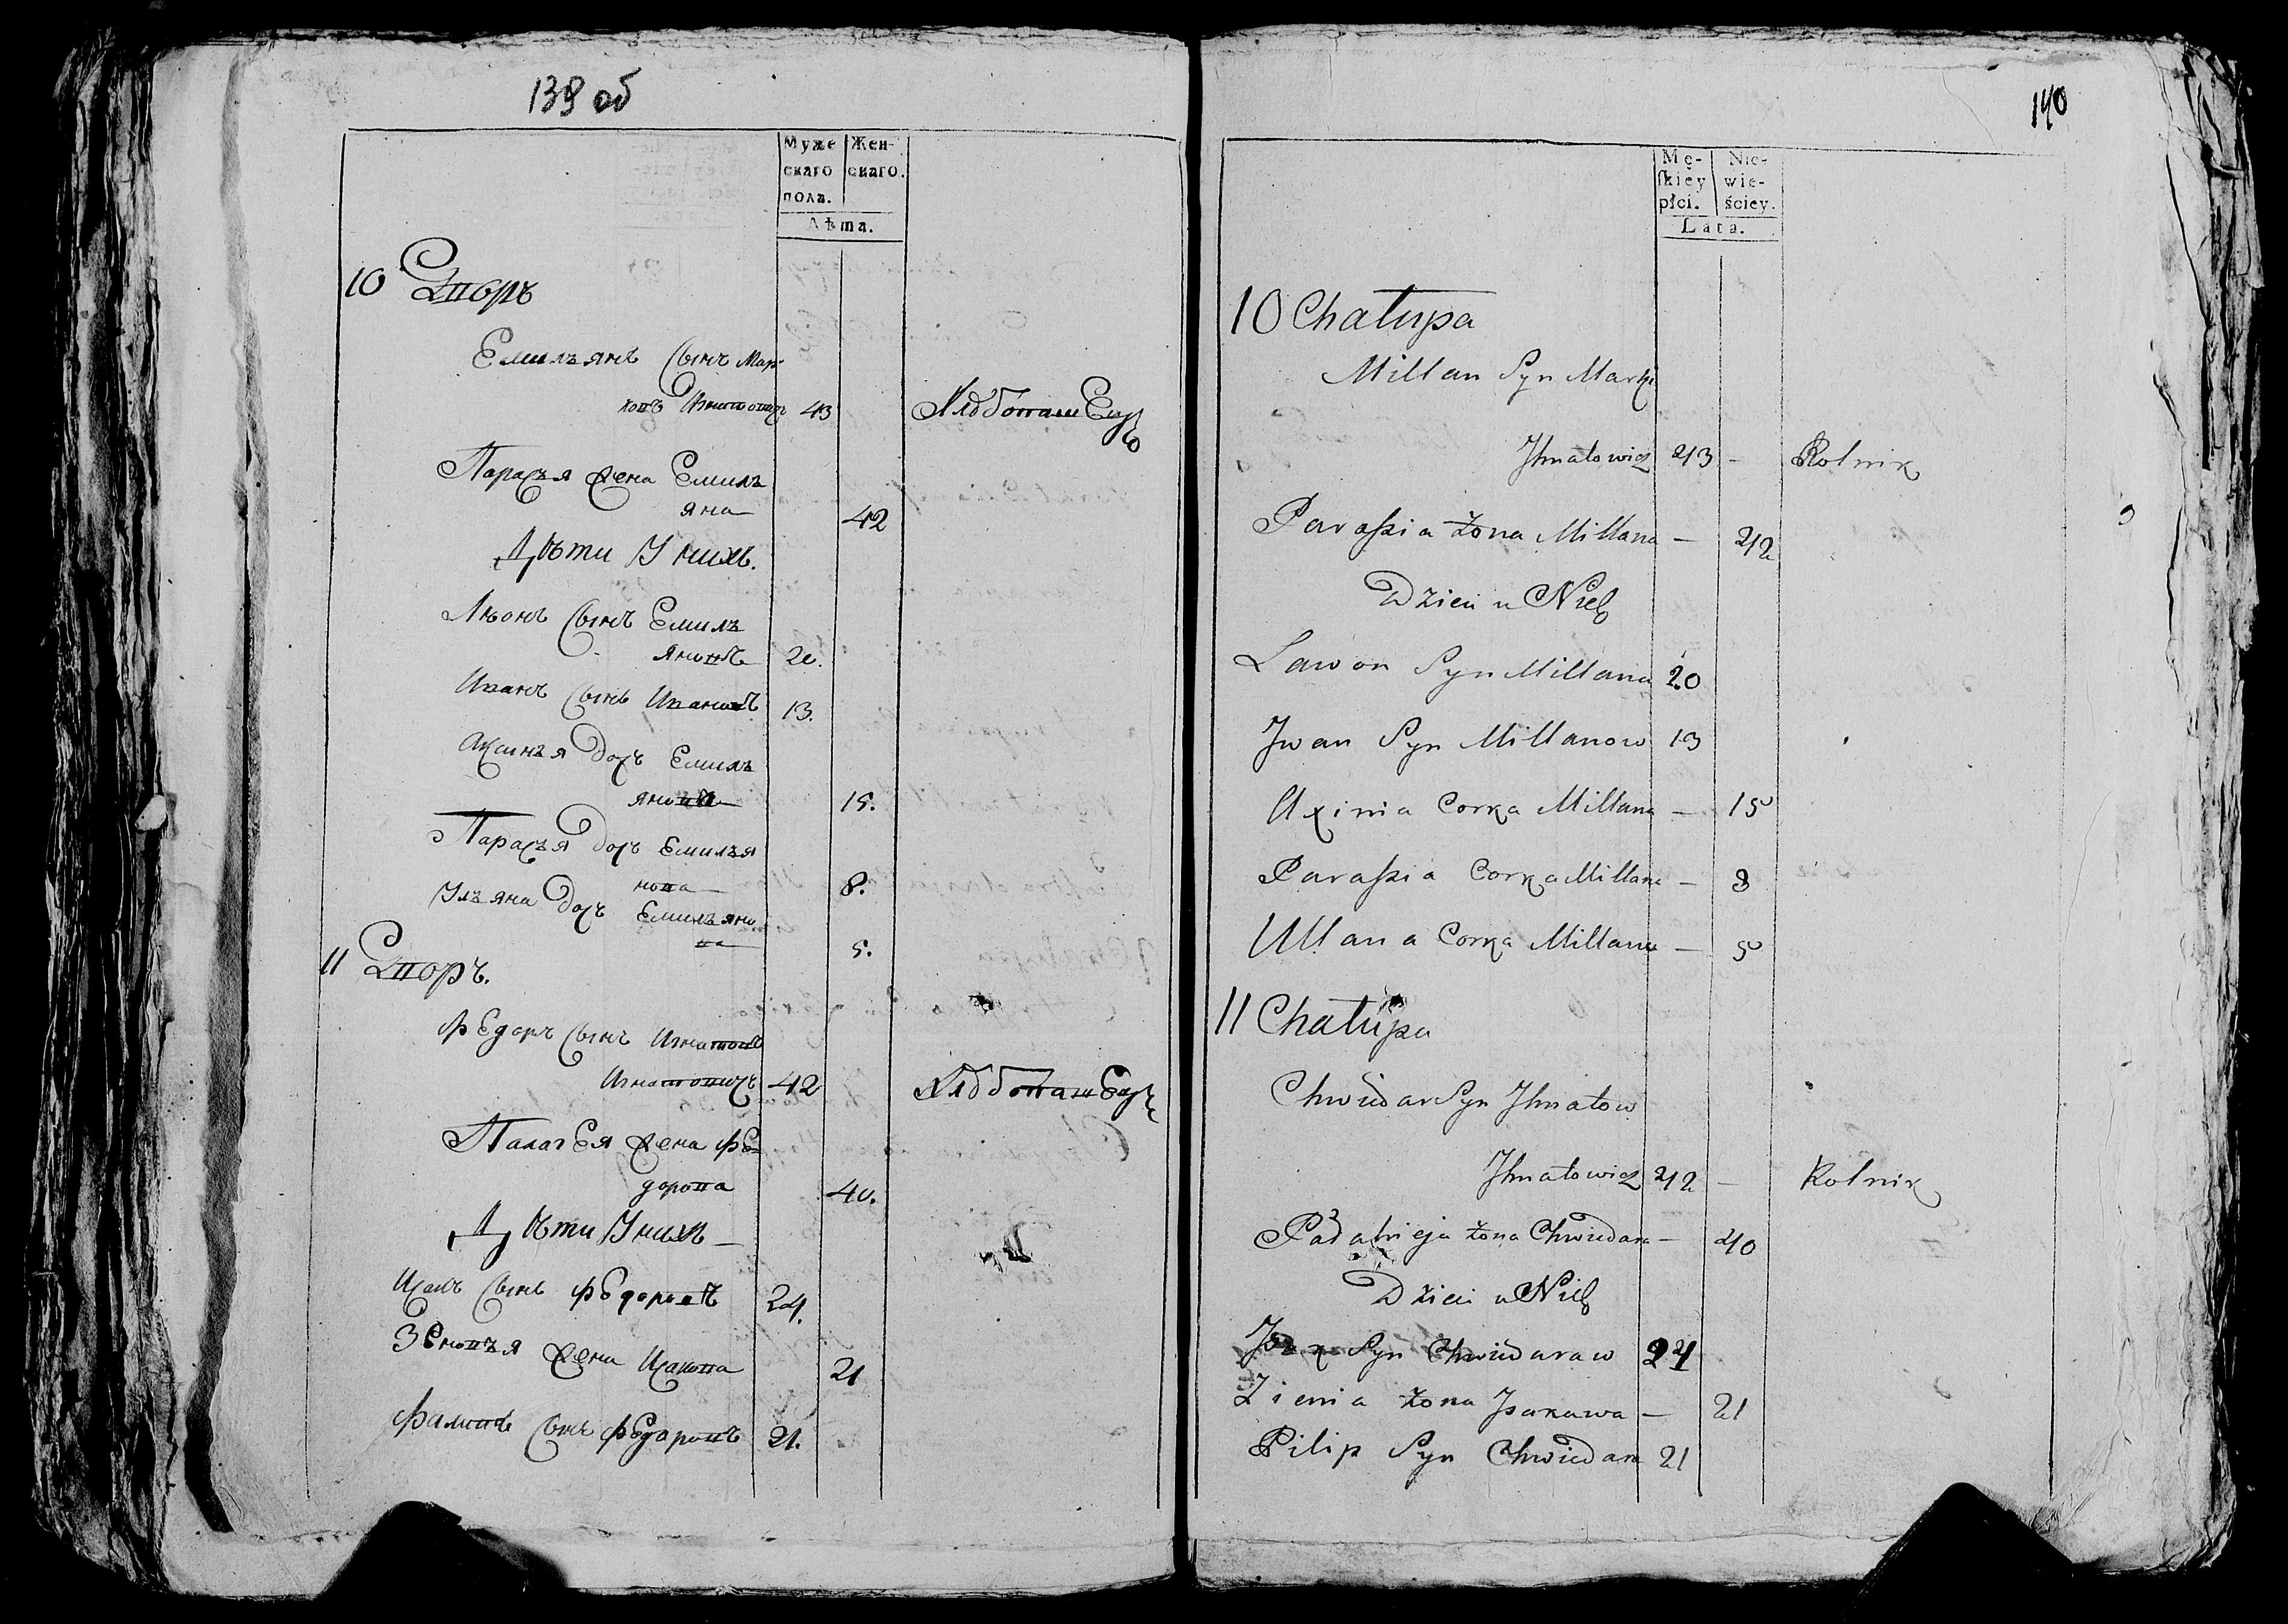 139 об
Муже
скаго
пола.
Жен-
скаго.
Лѣта.
10 Дворъ
Емильянъ Сынъ Мар
ковъ Игнатовичъ 43 Хлѣбопашецъ
Парасья Жена Емиль
яна 42
Дѣти У нихъ.
Лѣонъ Сынъ Емиль
яновъ 20.
Иванъ Сынъ Ивановъ 13.
Аксинья дочь Емиль
янова 15.
Парасья дочь Емилья
нова 8.
Ульяна дочь Емильяно
ва 5.
11 Дворъ.
Федоръ Сынъ Игнатовъ
Игнатовичъ 42 Хлѣбопашецъ
Палагея Жена Фе
дорова 40.
Дѣти У нихъ
Исакъ Сынъ Федоровъ 24.
Зеновья Жена Исакова 21
Филипъ Сынъ Федаровъ 21.
140
Mę-
ſkiey
płci.
Nie-
wie-
ściey.
Lata.
10 Chałupa
Millan Syn Marki
Ihnatowicz 43 – Rolnik
Paraſzia żona Millana – 42
Dzieci u Nich
Lawon Syn Millana 20
Jwan Syn Millanow 13
Axinia Corka Millana – 15
Paraſzia Corka Millana – 8
Ullana Corka Millana – 5
11 Chałupa
Chwiedar Syn Ihnatow
Ihnatowicz 42 – Rolnik
żona Chwiedara – 40
Dzieci u Nich
Syn Chwiedaraw 24
Zienia żona Jsakawa – 21
Pilip Syn Chwiedara 21